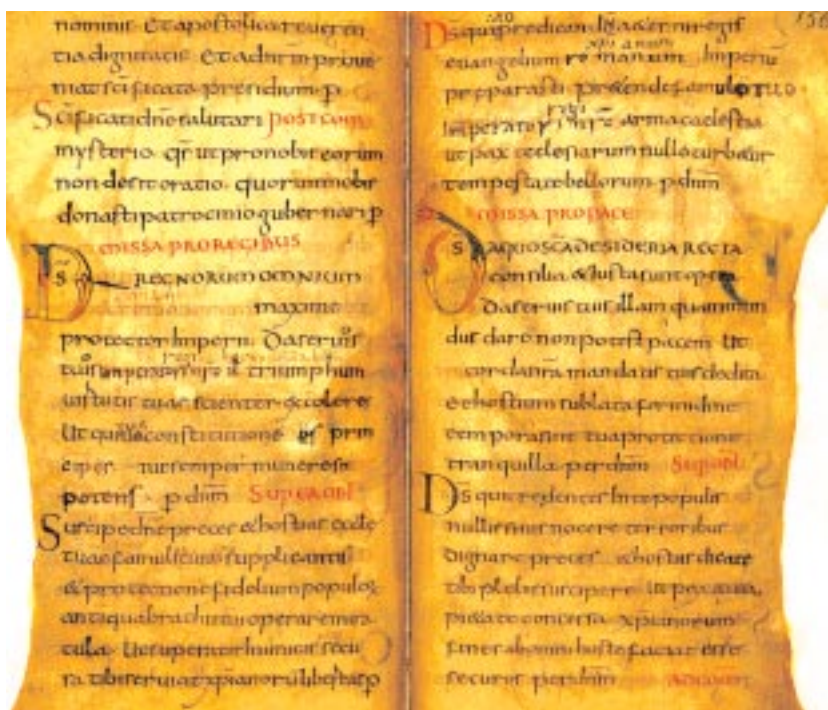 nominis · Et apostolica reuꝫ en
tia dignitatis · Et ad nr̄m proue
niat sc̄ificata presidium · p
Sc̄ificati dn̄e salutari POST COM
mysterio · qs̄ ut pro nobis eorum
non desit oratio · quorum nobis
donasti patrocinio gubernari p
MISSA PRO REGIBUS
DS̄ REGNORUM OMNIUM
maxime
protector Imperii · Da seruis
tuis triumphum
uirtutis tuae scienter excolere
Ut qui constitutione prin
cipes · tuo semper munere sint
potens · p dn̄m SUPER OBL
Suscipe dn̄e preces et hostias eccle
tuae famuli supplicantis
et protectione fidelium populoꝝ
antiqua brachii tui operare mira
cula · Ut superatis Inimicis secu
ra tibi seruiat xp̄ianorū libertas p
136
Ds̄ qui praedicando aeterni regis
euangelium romanum Imperiū
preparasti · pretende famulo tuo
Imperatori arma caelestia
ut pax ecclesiarum nulla turbetur
tempestate bellorum · p dn̄m
MISSA PRO PACE
DS̄ A QUO SC̄A DESIDERIA RECTA
consilia et Iusta sunt opera
Da seruis tuis illam quam mun
dus dare non potest pacem Ut
cor da nr̄a mandatis tuis dedita
et hostium sublata formidine
tempora sint tua protectione
tranquilla · per dn̄m SUP OBL
Ds̄ qui credentes In te populos
nullis sinis nocere terroribus
dignare preces et hostias dicatae
tibi plebis suscipere Ut pax a tua
pietate concessa xp̄ianorum
fines ab omni hoste faciat esse
securos per dn̄m AD COM